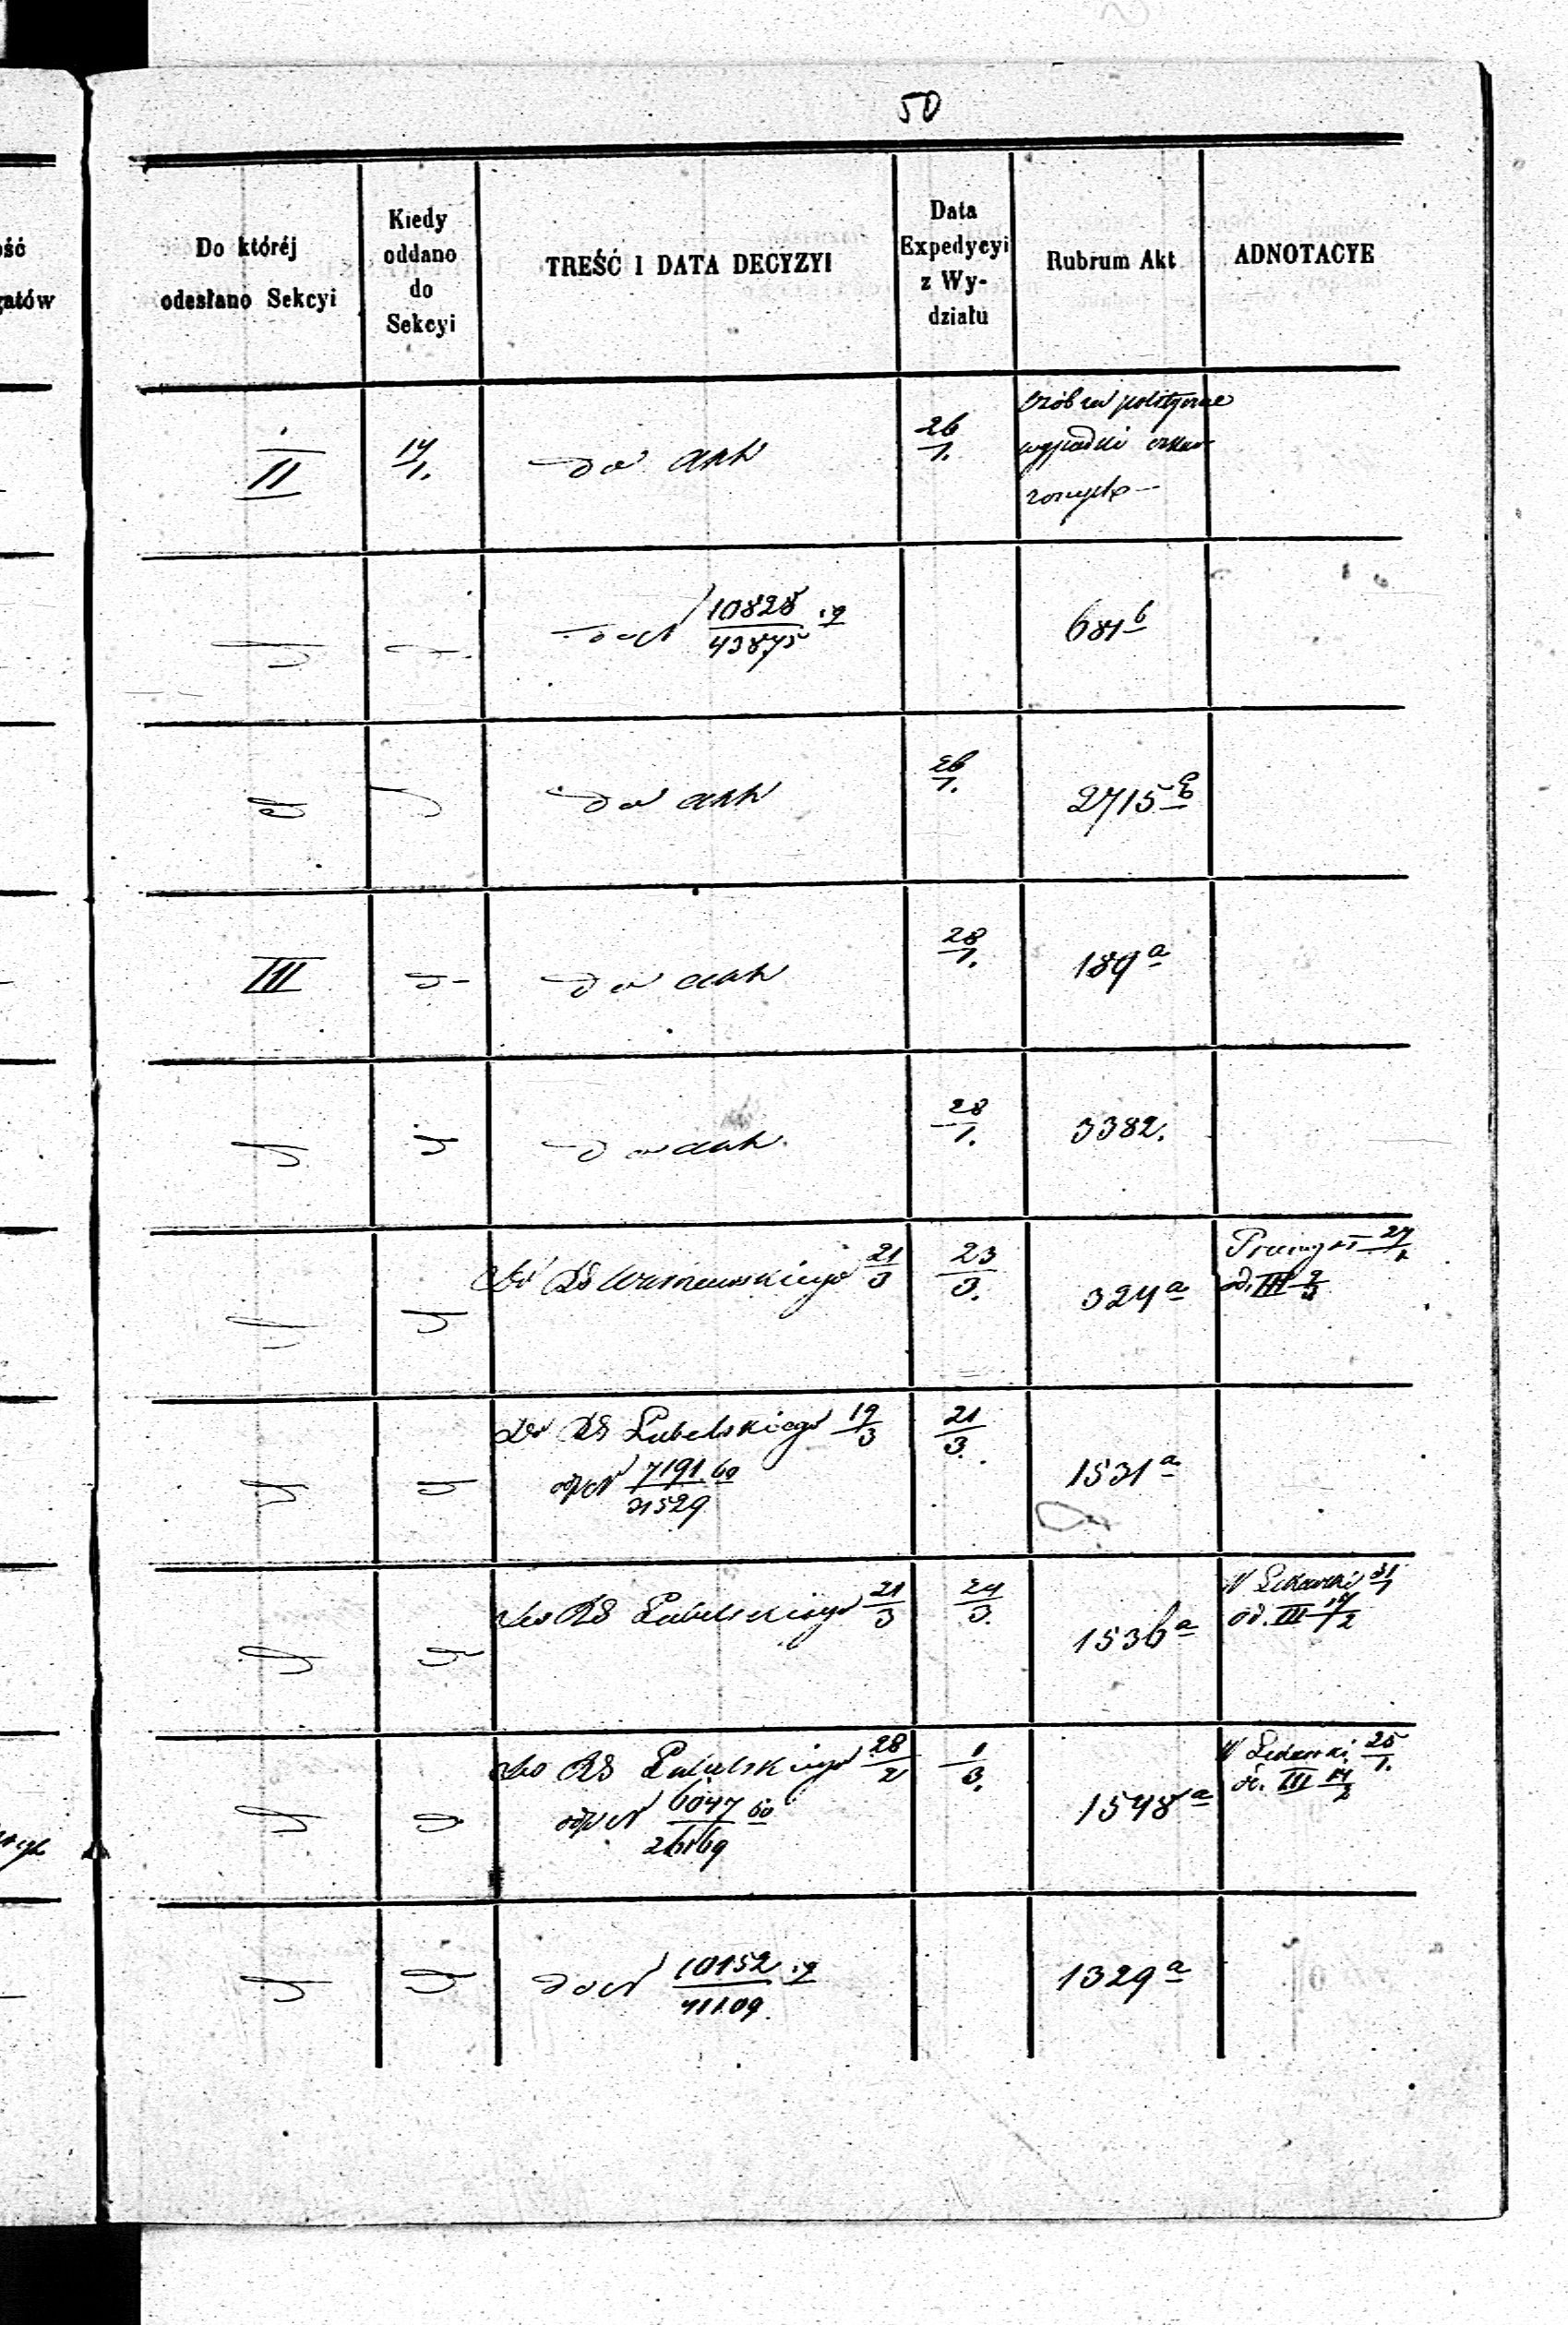 50
ość
gatów
Do któréj
odesłano Sekcyi
Kiedy
oddano
do
Sekcyi
TREŚĆ I DATA DECYZYI
Data
Expedycyi
z Wy-
działu
Rubrum Akt
ADNOTACYE
II
14/1.
do akt
26/1.
Osób za polityczne
wypadki oskar
żonych
do N 10828/43875
681 b
do akt
26/1.
2715
III
do akt
28/1.
189 a
do akt
28/1.
3382.
Do RG Warszawskiego 21/3
23/3.
324 a
27/1
od. III 2/3
Do RG Lubelskiego 19/3
odp N 7191/31529
21/3.
1531 a
Do RG Lubelskiego 21/3
24/3.
1536 a
W 31/1
od. III 14/2
Do RG Lubelskiego 28/2
odp N 6047/26169
1/3.
1548 a
W 25/1.
od. III 14/2
do N 10152/41109.
1329 a